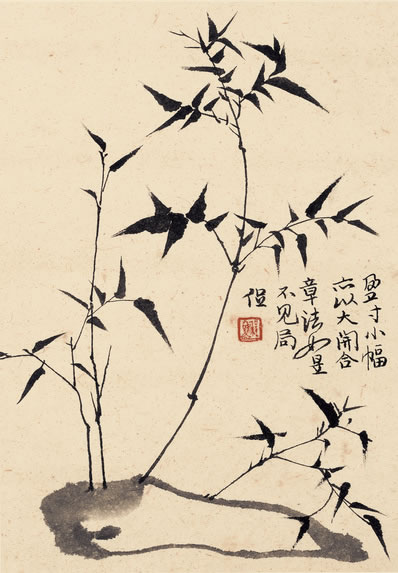 盈寸小幅
亦以大開合
章法如是
不见局
促